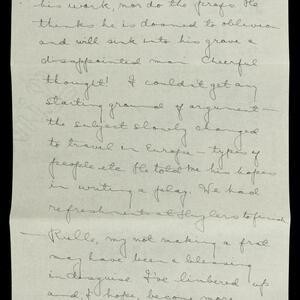 his work, nor do the profs. He
thinks he is doomed to oblivion
and will sink into his grave a
disappointed man. Cheerful
thought! I couldn't get any
starting ground of argument —
the subject slowly changed
to travel in Europe — types of
people etc He told me his hopes
in writing a play. We had
refreshments at Huylers to finish
— my not making a frat
may have been a blessing
in disguise. I've limbered up
and, I hope, become more